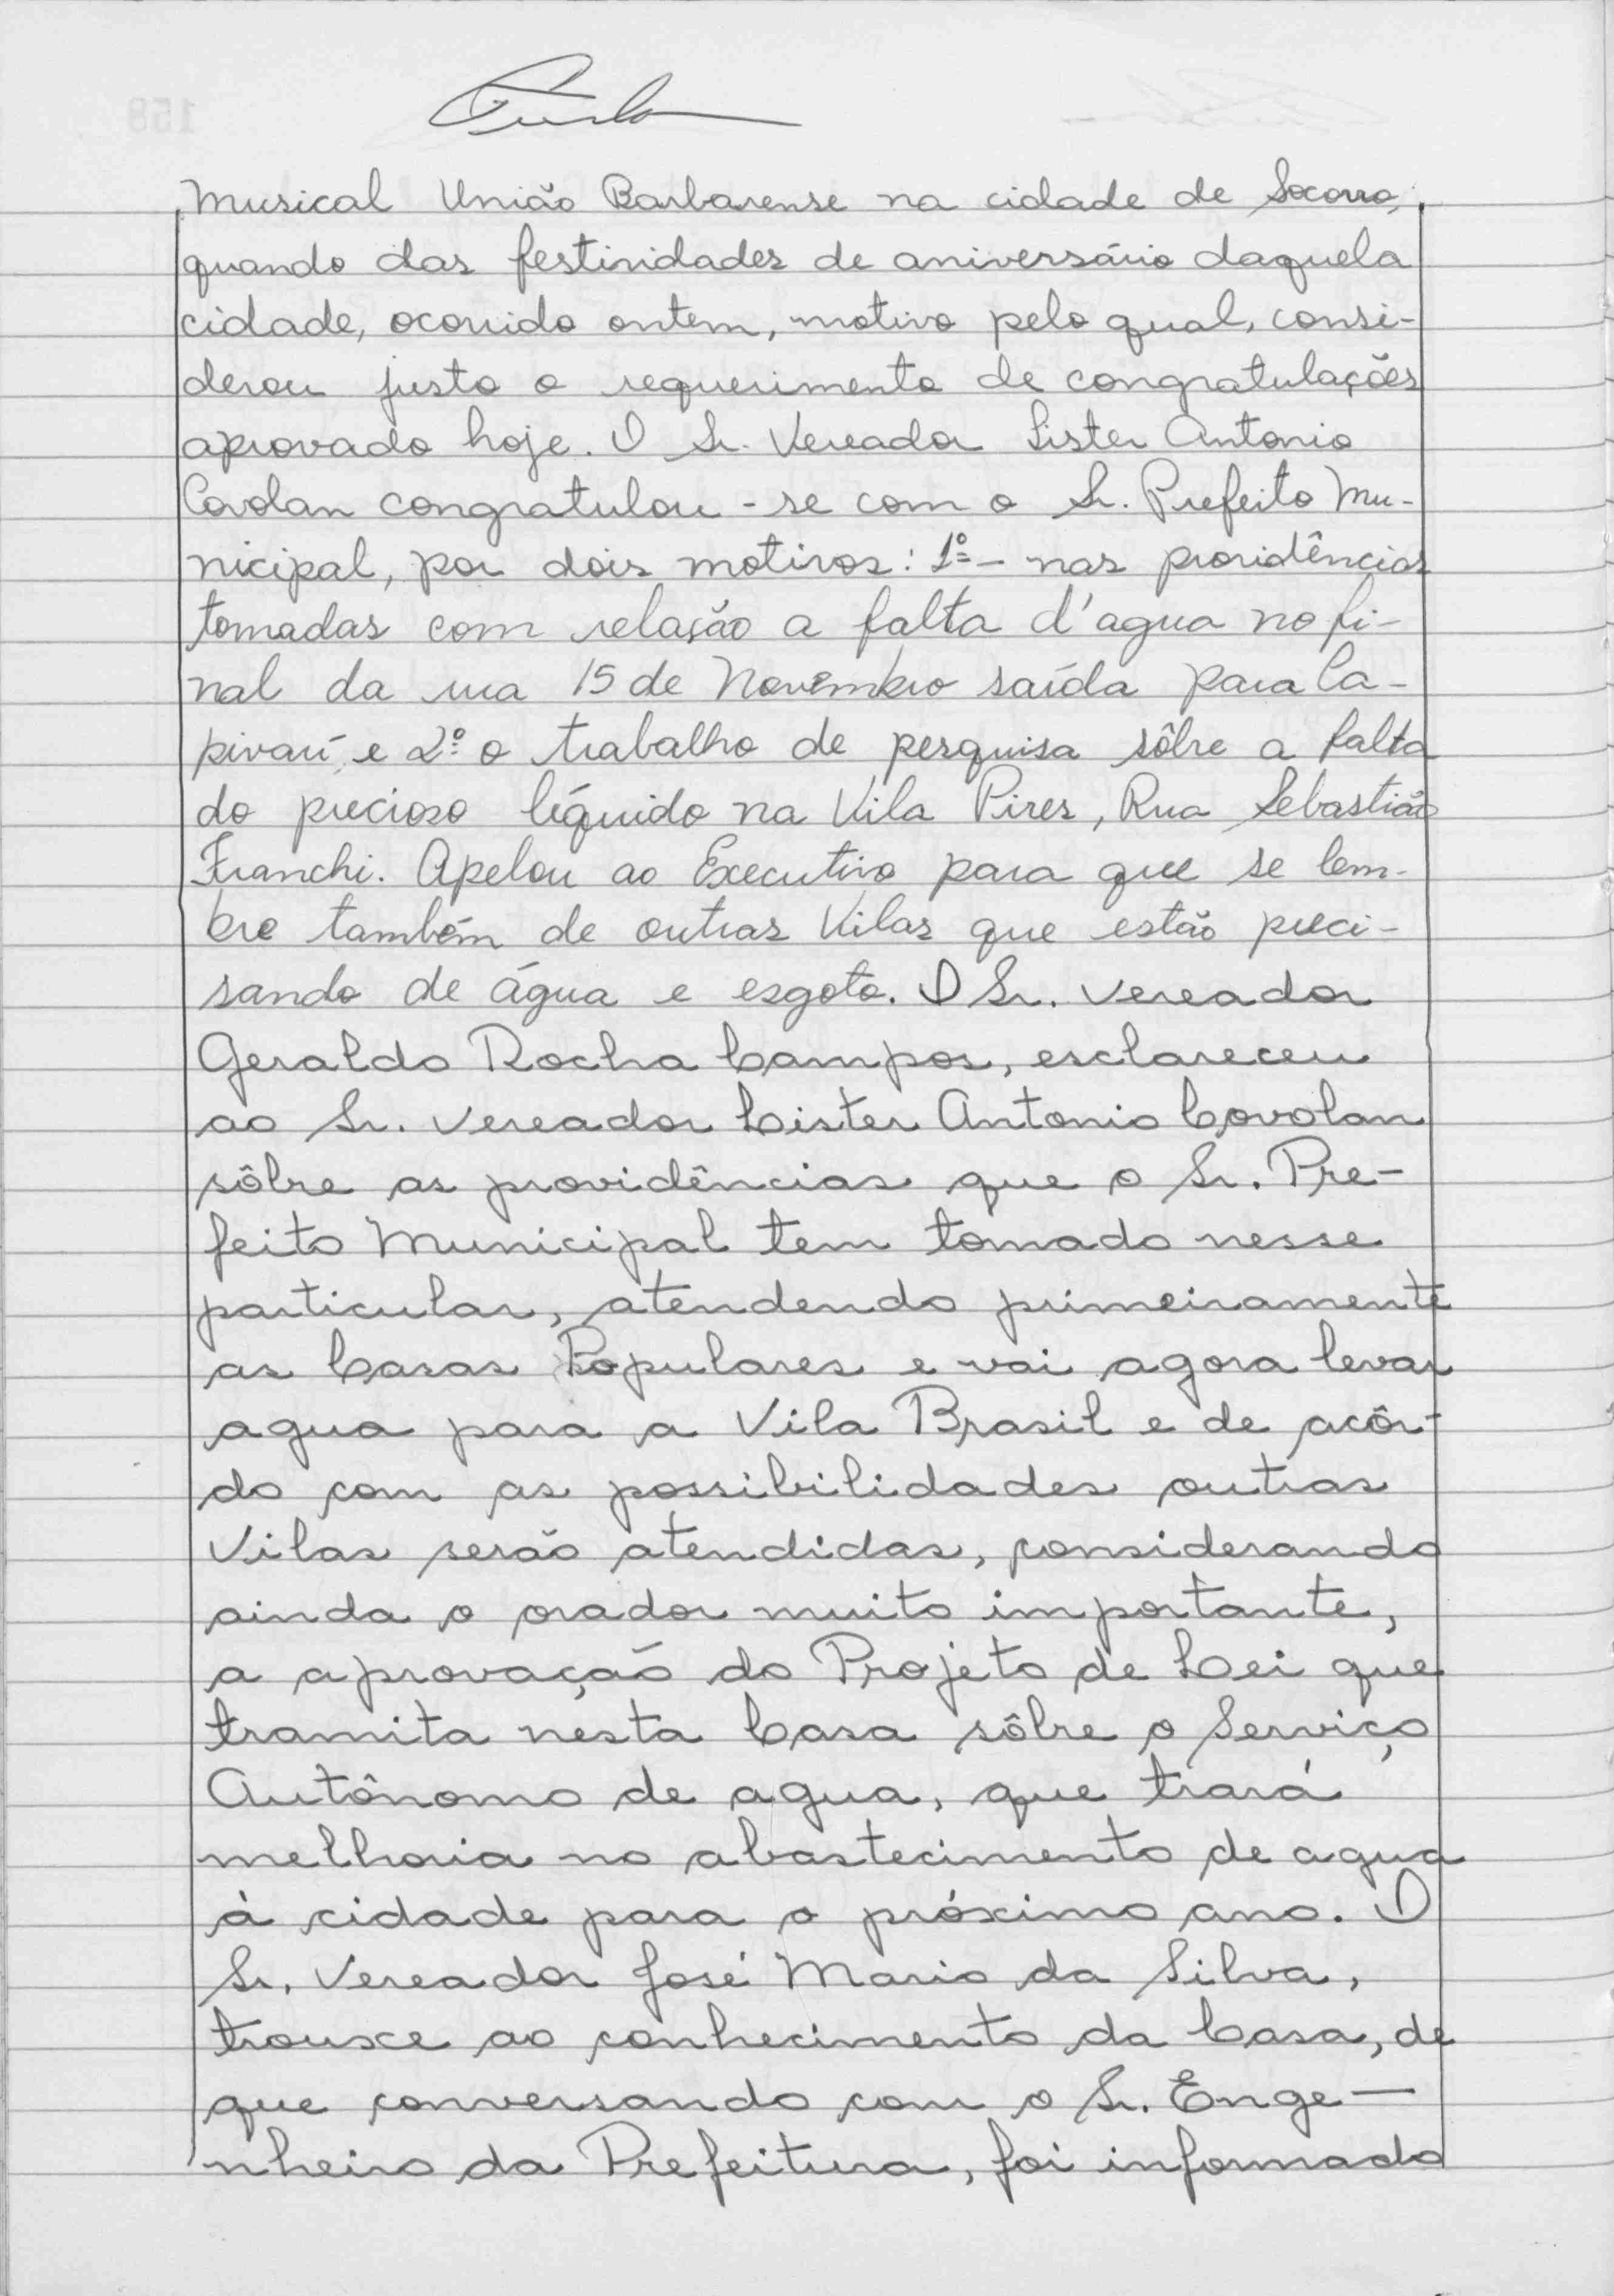 Musical União Barbarense na cidade de Socorro,
quando das festividades de aniversário daquela
cidade, ocorrido ontem, motivo pelo qual, consi-
derou justo o requerimento de congratulações
aprovado hoje. O Sr. Vereador Lister Antonio
Covolan congratulou-se com o Sr. Prefeito Mu-
nicipal, por dois motivos: 1º - nas providências
tomadas com relação a falta d'agua no fi-
nal da rua 15 de Novembro saída para Ca-
pivarí, e 2º o trabalho de pesquisa sôbre a falta
do precioso líquido na Vila Pires, Rua Sebastião
Franchi. Apelou ao Executivo para que se lem-
bre também de outras Vilas que estão preci-
sando de água e esgoto. O Sr. Vereador
Geraldo Rocha Campos, esclareceu
ao Sr. Vereador Lister Antonio Covolan
sôbre as providências que o Sr. Pre-
feito Municipal tem tomado nesse
particular, atendendo primeiramente
as Casas Populares e vai agora levar
agua para a Vila Brasil e de acôr-
do com as possibilidades outras
Vilas serão atendidas, considerando
ainda o orador muito importante,
a aprovação do Projeto de Lei que
tramita nesta Casa sôbre o Serviço
Autônomo de agua, que trará
melhoria no abastecimento de agua
à cidade para o próximo ano. O
Sr. Vereador José Mario da Silva,
trouxe ao conhecimento da Casa, de
que conversando com o Sr. Enge-
nheiro da Prefeitura, foi informado